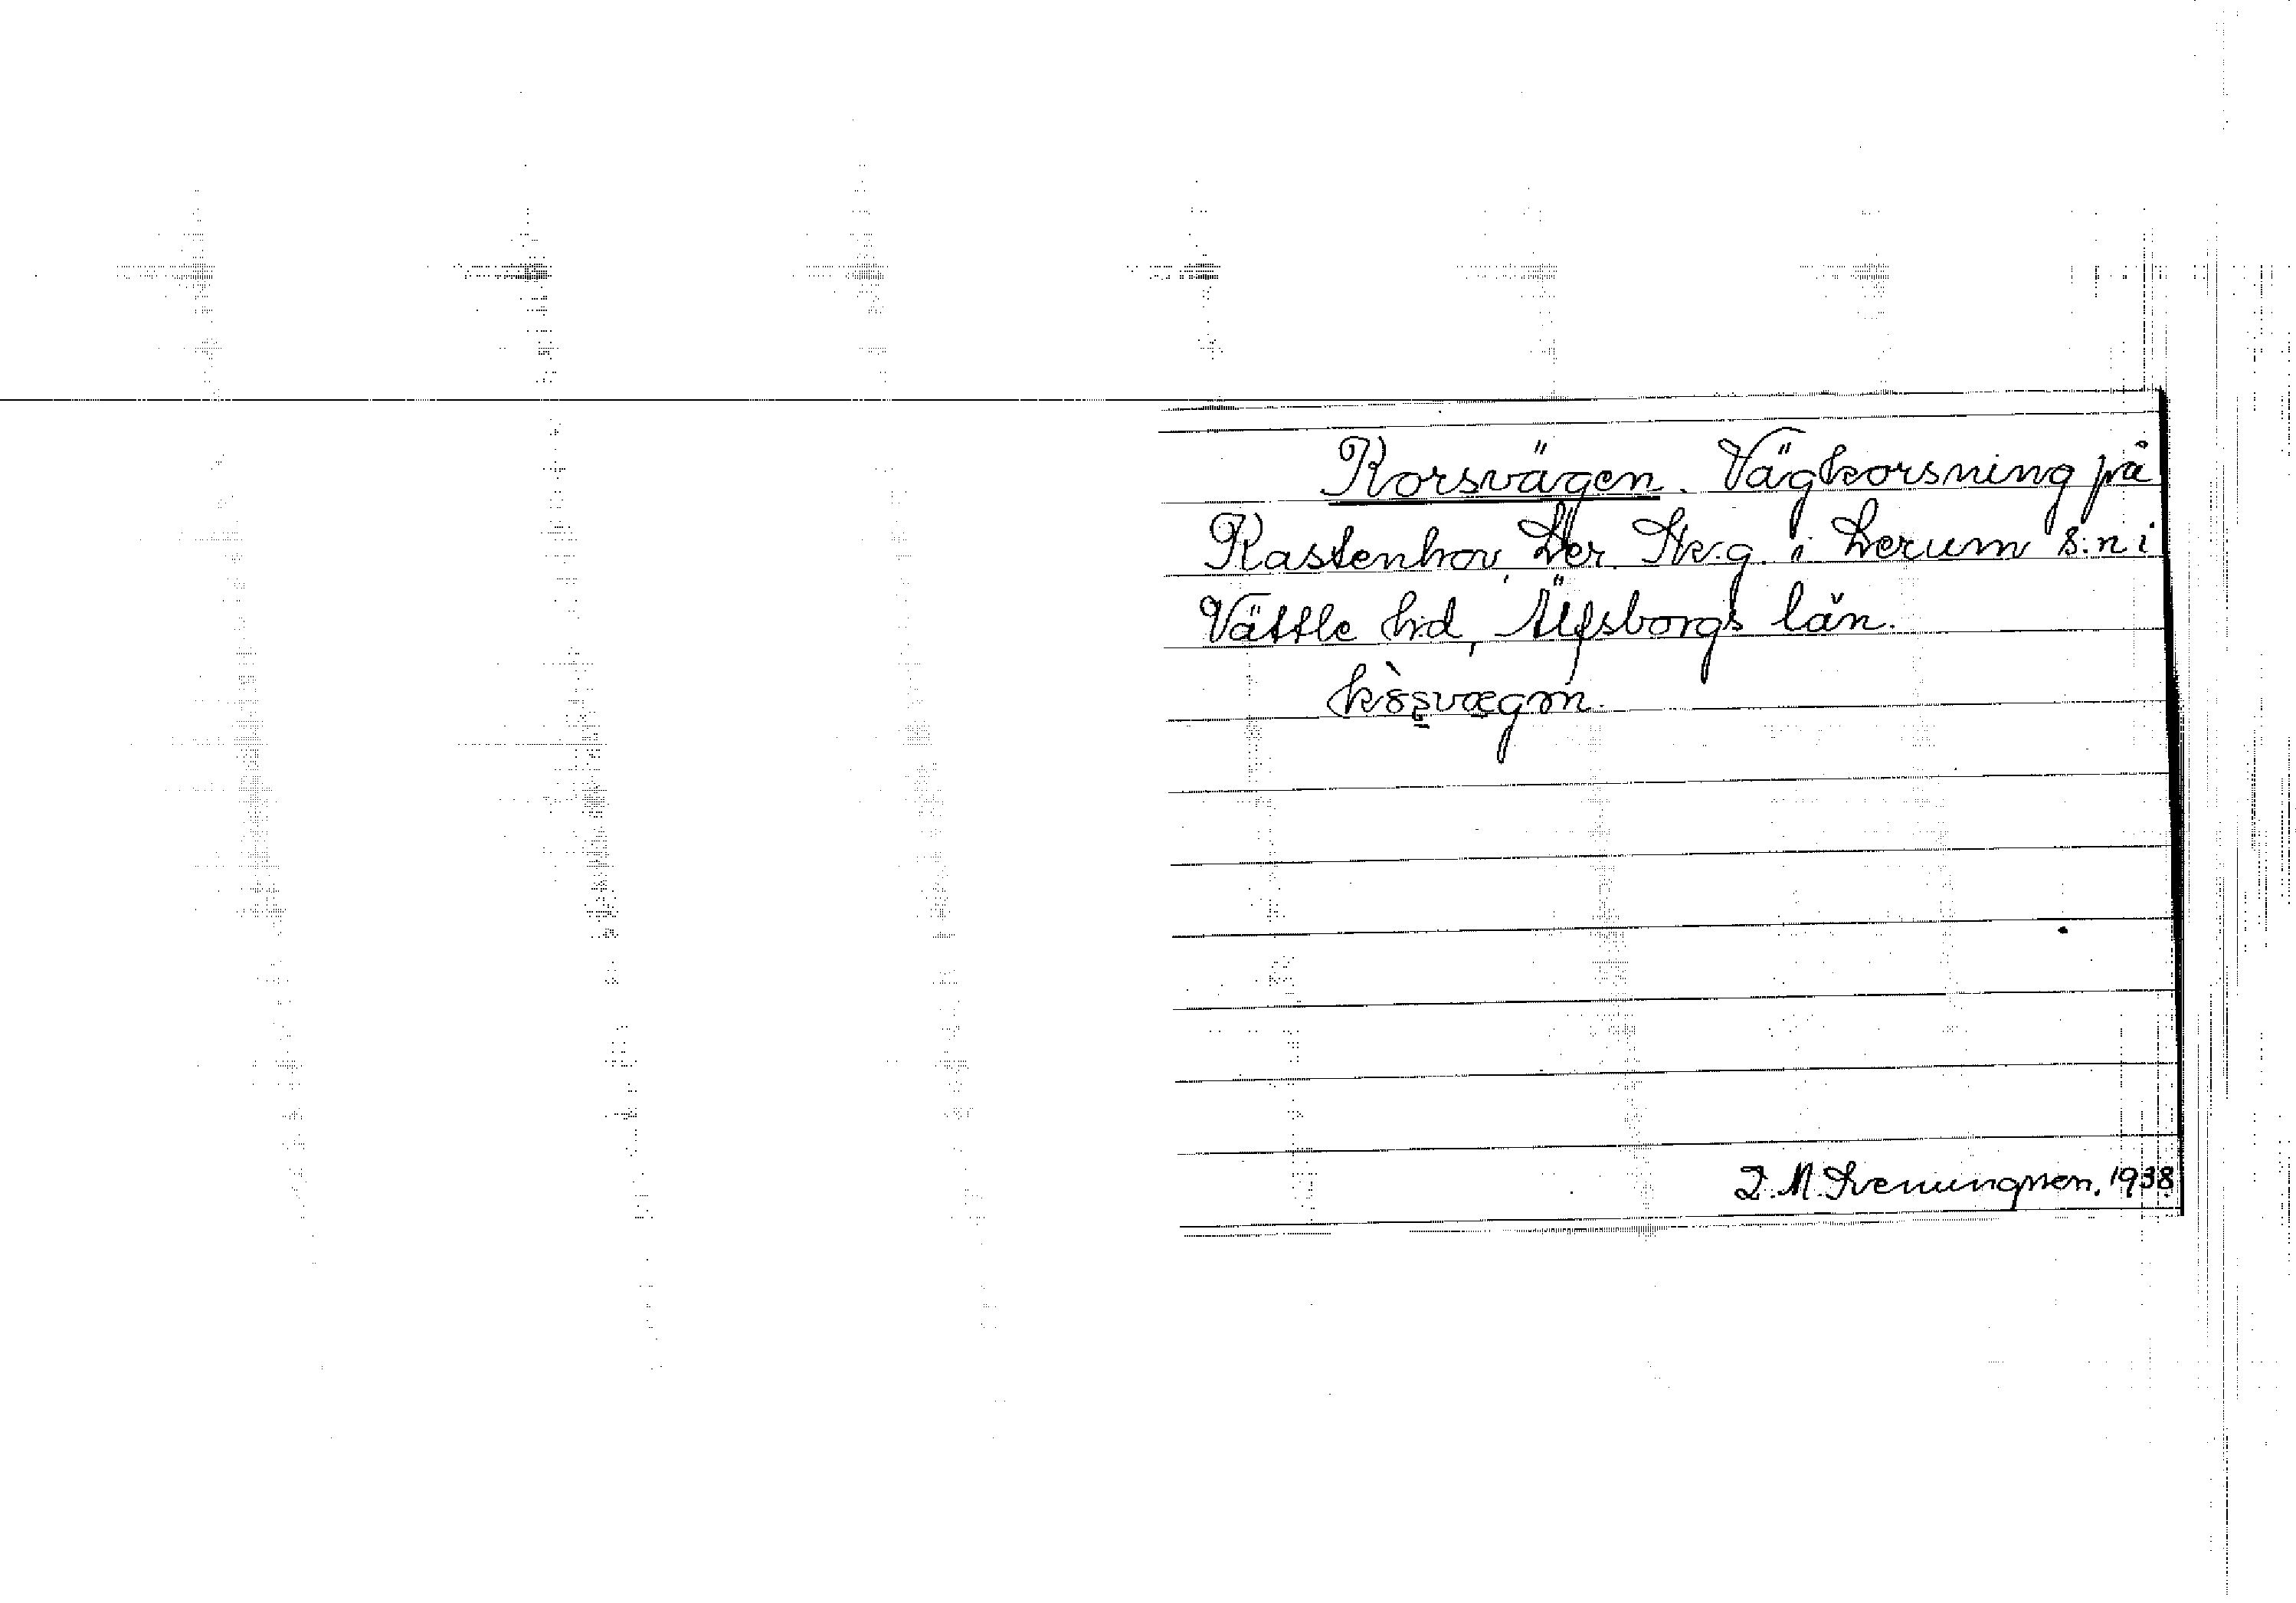 Korsvägen. Vägkorsning på
Kastenhov, Ler. St.g. i Lerum s:n i
Vättle hd, Älfsborgs län.
kòsvægən.
J. M. Svenungsson, 1938